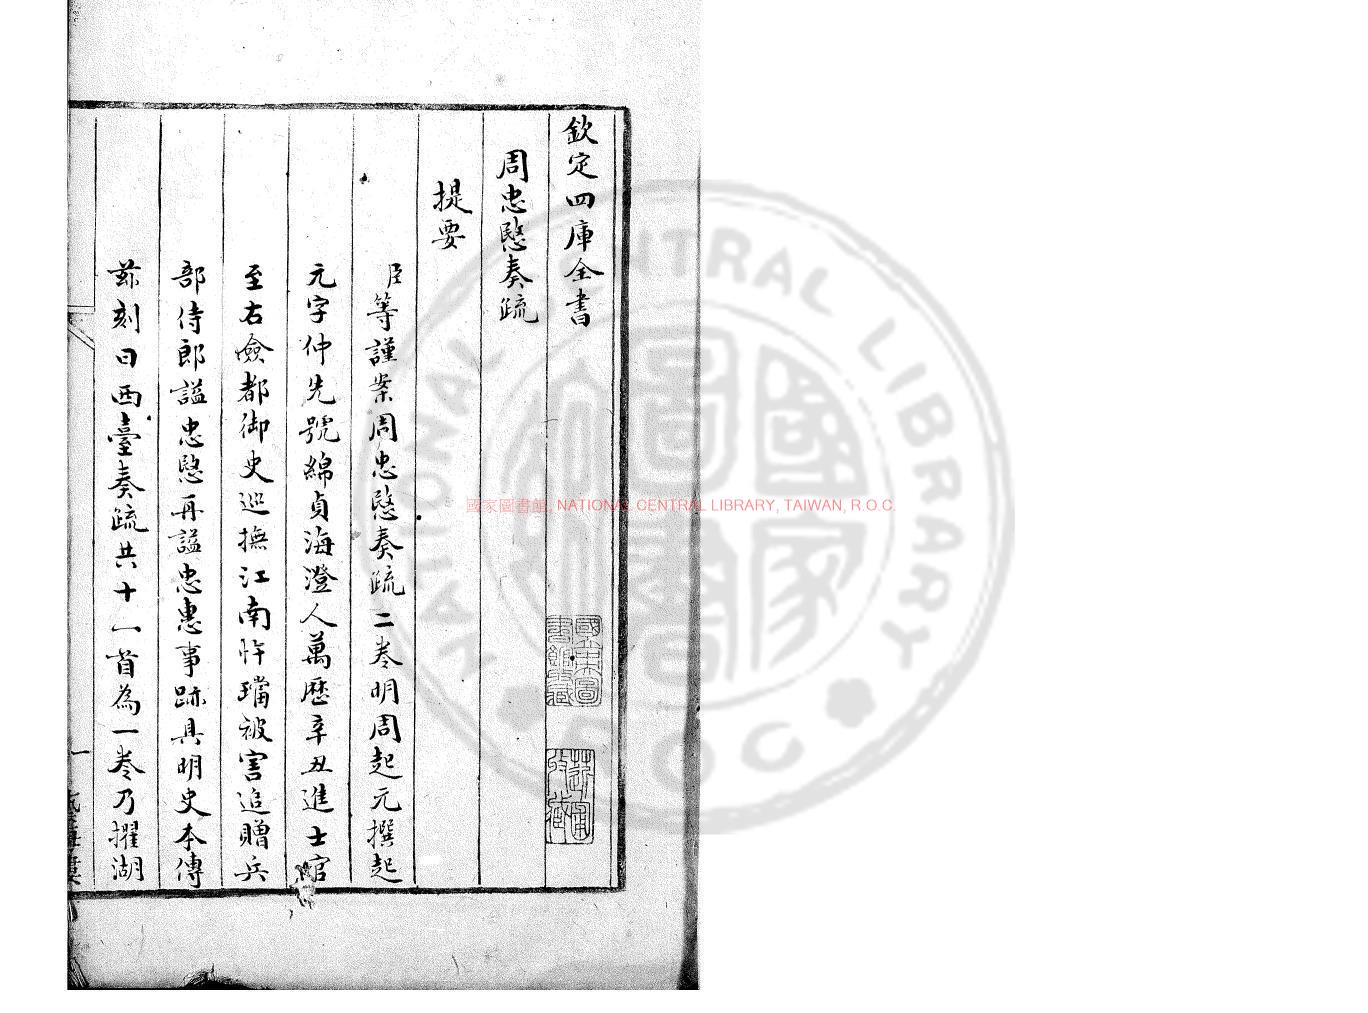 欽定四庫全書
周忠愍奏疏
提要
臣等謹案周忠愍奏疏二卷明周起元撰起
元字仲先號綿貞海澄人萬歷辛丑進士官
至右僉都御史巡撫江南忤璫被害追贈兵
部侍郎謚忠愍再謚忠惠事跡具明史本傳
茲刻曰西臺奏疏共十一首為一卷乃擢湖
一
國家圖書館藏
國家圖書館, NATIONAL CENTRAL LIBRARY, TAIWAN, R.O.C.
NATIONAL CENTRAL LIBRARY
R.O.C